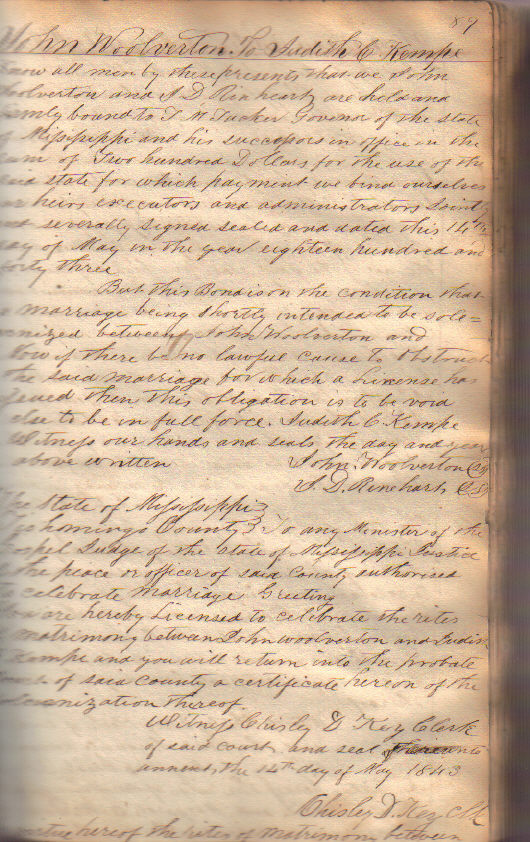 89
John Woolverton To Judith C. Kempe
Know all men by these presents that we John
Woolverton and S D Rinehart are held and
firmly bound to T M Tucker Govenor of the state
of Mississippi and his successors in office in the
sum of Two hundred Dollars for the use of the
said state for which payment we bind ourselves
our heirs executors and administrators Joint
and severally signed sealed and dated this 14th
day of May in the year eighteen hundred and
forty three
But this Bond is on the condition that
a marriage being shortly intended to be sole=
mnized between John Woolverton and
Now if there be no lawful cause to obstruct
the said marriage for which a License has
issued then this obligation is to be void
else to be in full force. Judith C Kempe
Witness our hands and seals the day and year
above written John. Woolverton
S. D. Rinehart
The State of Mississippi
County To any Minister of the
Gospel Judge of the state of Mississippi Justice
of the peace or officer of said County authorised
to celebrate marriage Greeting
You are hereby Licensed to celebrate the rites
matrimony between John Woolverton and Judith
Kempe and you will return into the probate
of said County a certificate hereon of the
solemnization thereof.
Witness Chisley D Key Clerk
of said court and seal
annext, the 14th day of May 1843
Chisley D. Key Clk
virtue hereof the rites of matrimony between